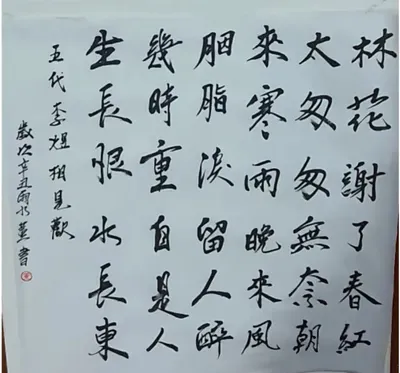 林花謝了春紅
太匆匆無奈朝
來寒雨晚來風
胭脂淚留人醉
幾時重自是人
生長恨水長東
五代李煜相見歡
歲次辛丑雨水書